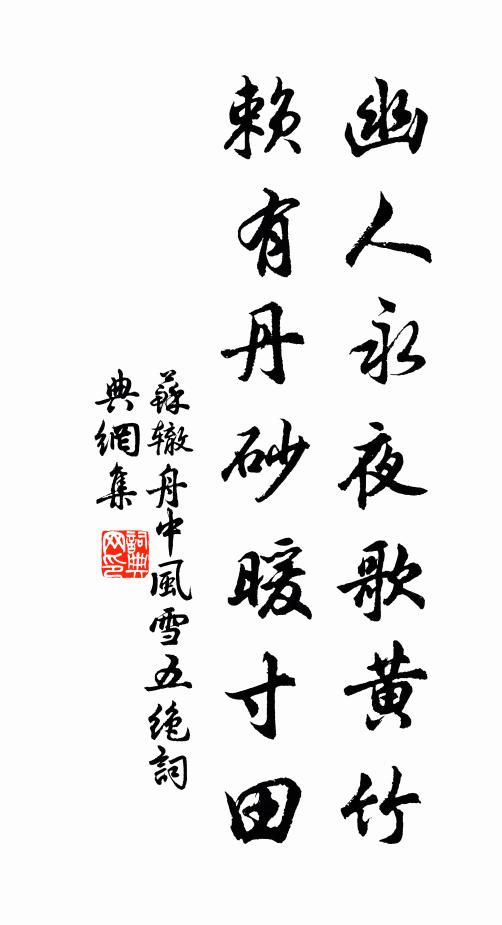 幽人永夜歌黄竹
賴有丹砂暖寸田
蘇辙舟中風雪五絶詞
典網集
詞典
网印